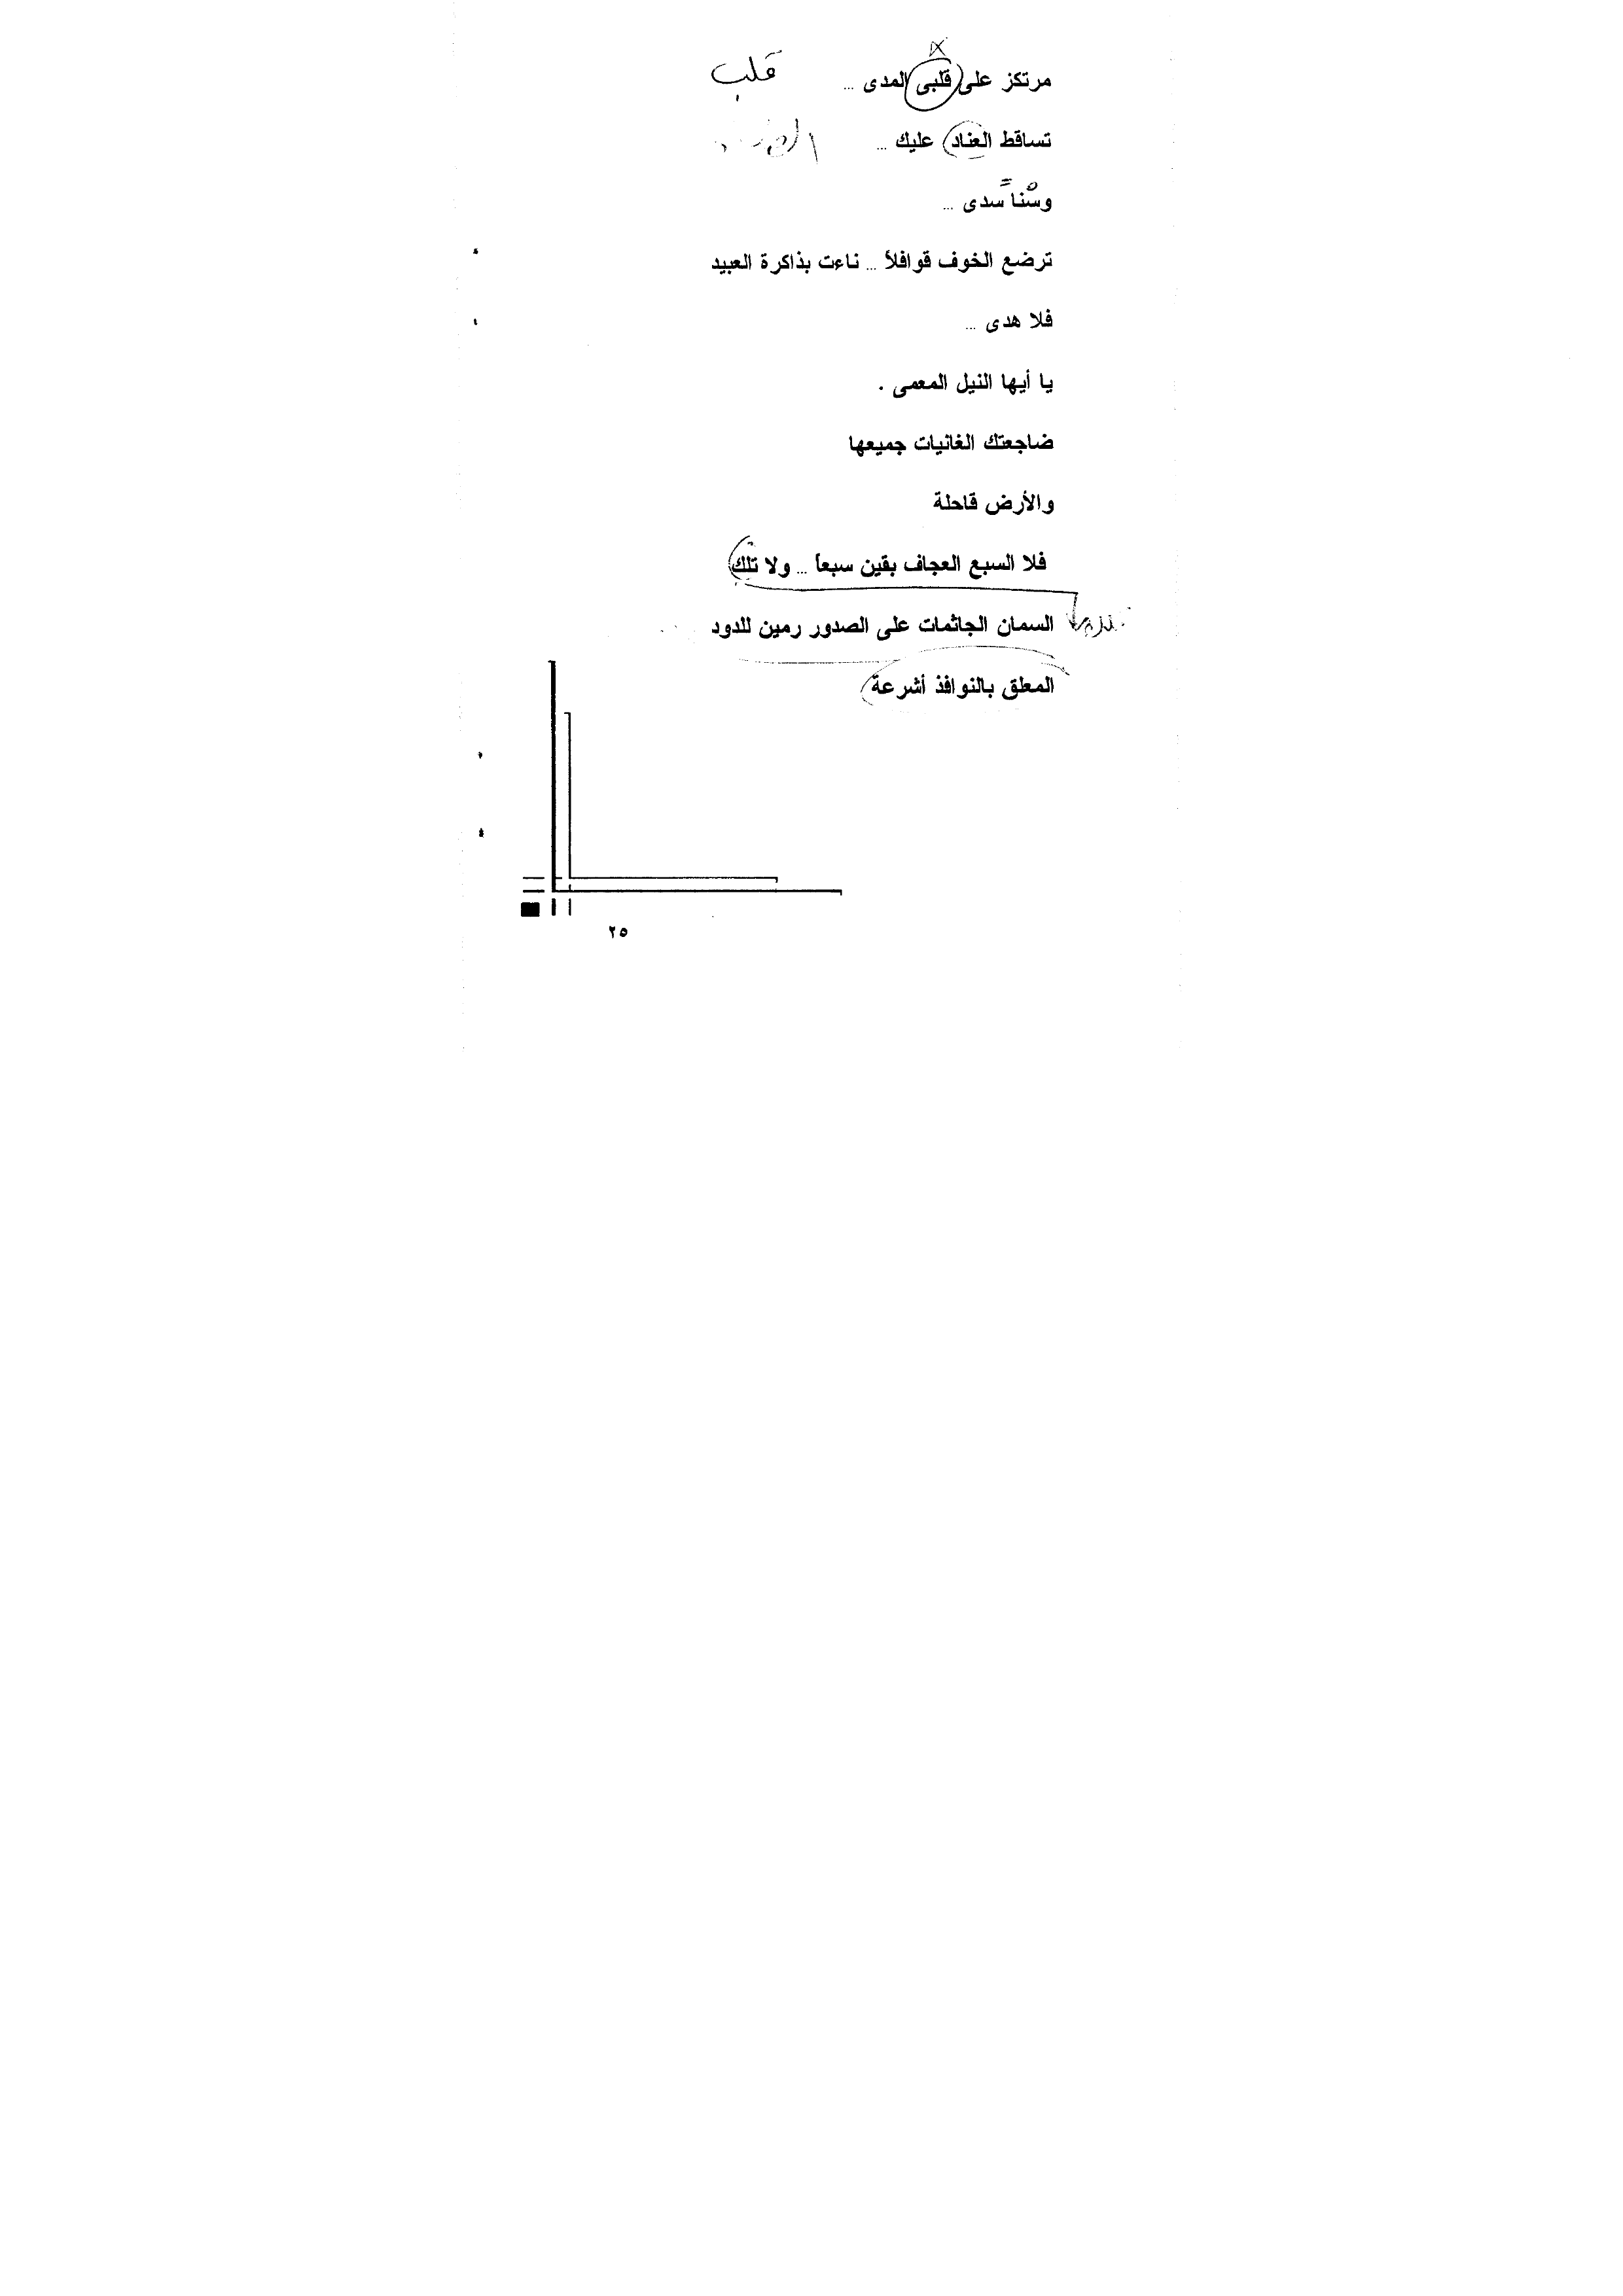 مرتكز على قلبى المدى ... قلب
تساقط العناد عليك ...
وسُناً سدى ...
ترضع الخوف قوافلاً ... ناءت بذاكرة العبيد
فلا هدى ...
يا أيها النيل المعمى .
ضاجعتك الغانيات جميعها
والأرض قاحلة
فلا السبع العجاف بقين سبعاً ... ولا تلك
السمان الجاثمات على الصدور رمين للدود
المعلق بالنوافذ أشرعة
٢٥